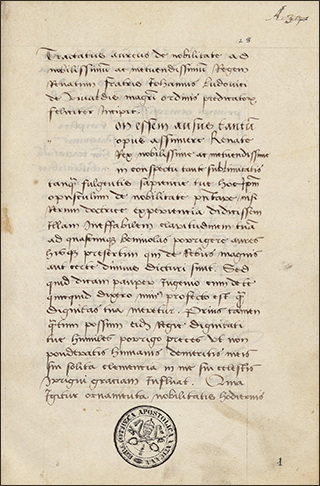 28
Tractatus aureus de nobilitate ad
nobilissimum ac metuendissimum Regem
Renatum fratris Johannis Ludovici
de Vivaldis magri ordinis predicatorx
feliciter Incipit.
On essem ausus tantū
opus assumere Renate
Rex nobilissime ac metuendissime
in conspectu tante sublimitatis
tanqȝ fulgentis sapiencie tue hoc
opusculum de nobilitate nisi
Rerum docente experiencia didicissem
Illam Ineffabilem claritudinem tuā
ad benivolas porrigere aures
hijsqȝ presertim qui de Rebus magnis
aut certe divinis dicturi sunt. Sed
quid dicam pauper Ingenio cum
quicquid dixero minus profecto est qȝ
dignitas tua meretur. Prius tamen
qȝtum possum Regie dignitati
tue humiles porrigo preces ut non
ponderatis humanis demeritis meis
sui solita clemencia in me sui celestis
graciam Influat. Qma
Igitur ornamenta nobilitatis hodiernis
BIBLIOTHECA APOSTOLICA VATICANA
1